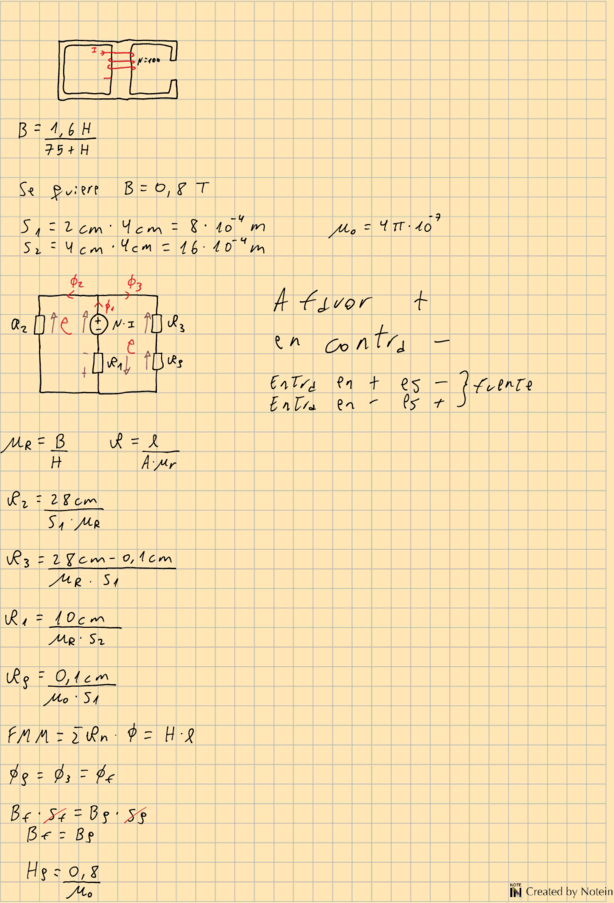 I N=100
B = 1,6 H / 75 + H
Se quiere B = 0,8 T
S1 = 2 cm · 4 cm = 8 · 10^-4 m
μ0 = 4π · 10^-7
S2 = 4 cm · 4 cm = 16 · 10^-4 m
ϕ2 ϕ3
ϕ1
R2 e N·I R3
e
R1 Rg
A favor +
en contra -
Entra en + es -
Entra en - es + } fuente
μR = B / H R = l / A·μr
R2 = 28 cm / S1 · μR
R3 = 28 cm - 0,1 cm / μR · S1
R1 = 10 cm / μR · S2
Rg = 0,1 cm / μ0 · S1
FMM = Σ Rn · ϕ = H · l
ϕg = ϕ3 = ϕf
Bf · Sf = Bg · Sg
Bf = Bg
Hg = 0,8 / μ0
NOTE IN Created by Notein